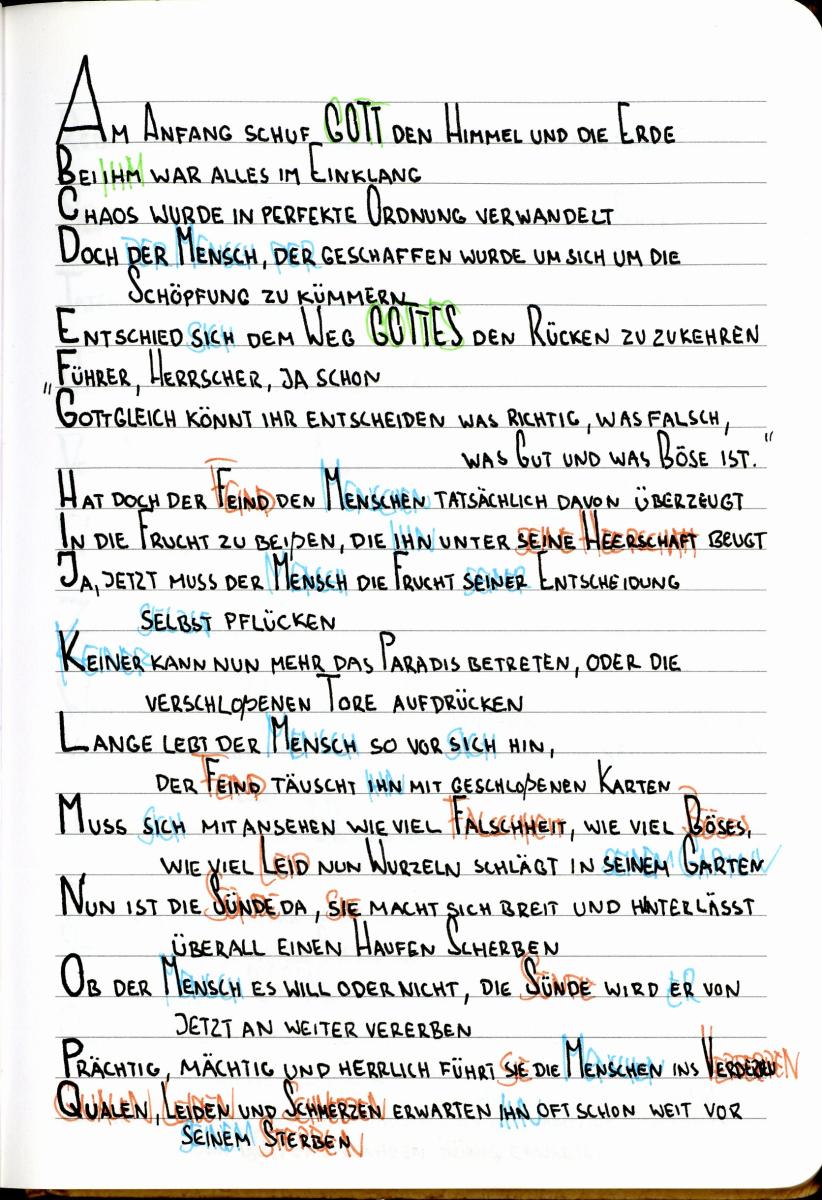 AM ANFANG SCHUF GOTT DEN HIMMEL UND DIE ERDE
BEI IHM WAR ALLES IM EINKLANG
CHAOS WURDE IN PERFEKTE ORDNUNG VERWANDELT
DOCH DER MENSCH, DER GESCHAFFEN WURDE UM SICH UM DIE
SCHÖPFUNG ZU KÜMMERN
ENTSCHIED SICH DEM WEG GOTTES DEN RÜCKEN ZU ZUKEHREN
FÜHRER, HERRSCHER, JA SCHON
"GOTTGLEICH KÖNNT IHR ENTSCHEIDEN WAS RICHTIG, WAS FALSCH,
WAS GUT UND WAS BÖSE IST."
HAT DOCH DER FEIND DEN MENSCHEN TATSÄCHLICH DAVON ÜBERZEUGT
IN DIE FRUCHT ZU BEIßEN, DIE IHN UNTER SEINE HEERSCHAFT BEUGT
JA, JETZT MUSS DER MENSCH DIE FRUCHT SEINER ENTSCHEIDUNG
SELBST PFLÜCKEN
KEINER KANN NUN MEHR DAS PARADIS BETRETEN, ODER DIE
VERSCHLOßENEN TORE AUFDRÜCKEN
LANGE LEBT DER MENSCH SO VOR SICH HIN,
DER FEIND TÄUSCHT IHN MIT GESCHLOßENEN KARTEN
MUSS SICH MIT ANSEHEN WIE VIEL FALSCHHEIT, WIE VIEL BÖSES,
WIE VIEL LEID NUN WURZELN SCHLÄGT IN SEINEM GARTEN
NUN IST DIE SÜNDE DA, SIE MACHT SICH BREIT UND HINTERLÄSST
ÜBERALL EINEN HAUFEN SCHERBEN
OB DER MENSCH ES WILL ODER NICHT, DIE SÜNDE WIRD ER VON
JETZT AN WEITER VERERBEN
PRÄCHTIG, MÄCHTIG UND HERRLICH FÜHRT SIE DIE MENSCHEN INS VERDERBEN
QUALEN, LEIDEN UND SCHMERZEN ERWARTEN IHN OFT SCHON WEIT VOR
SEINEM STERBEN